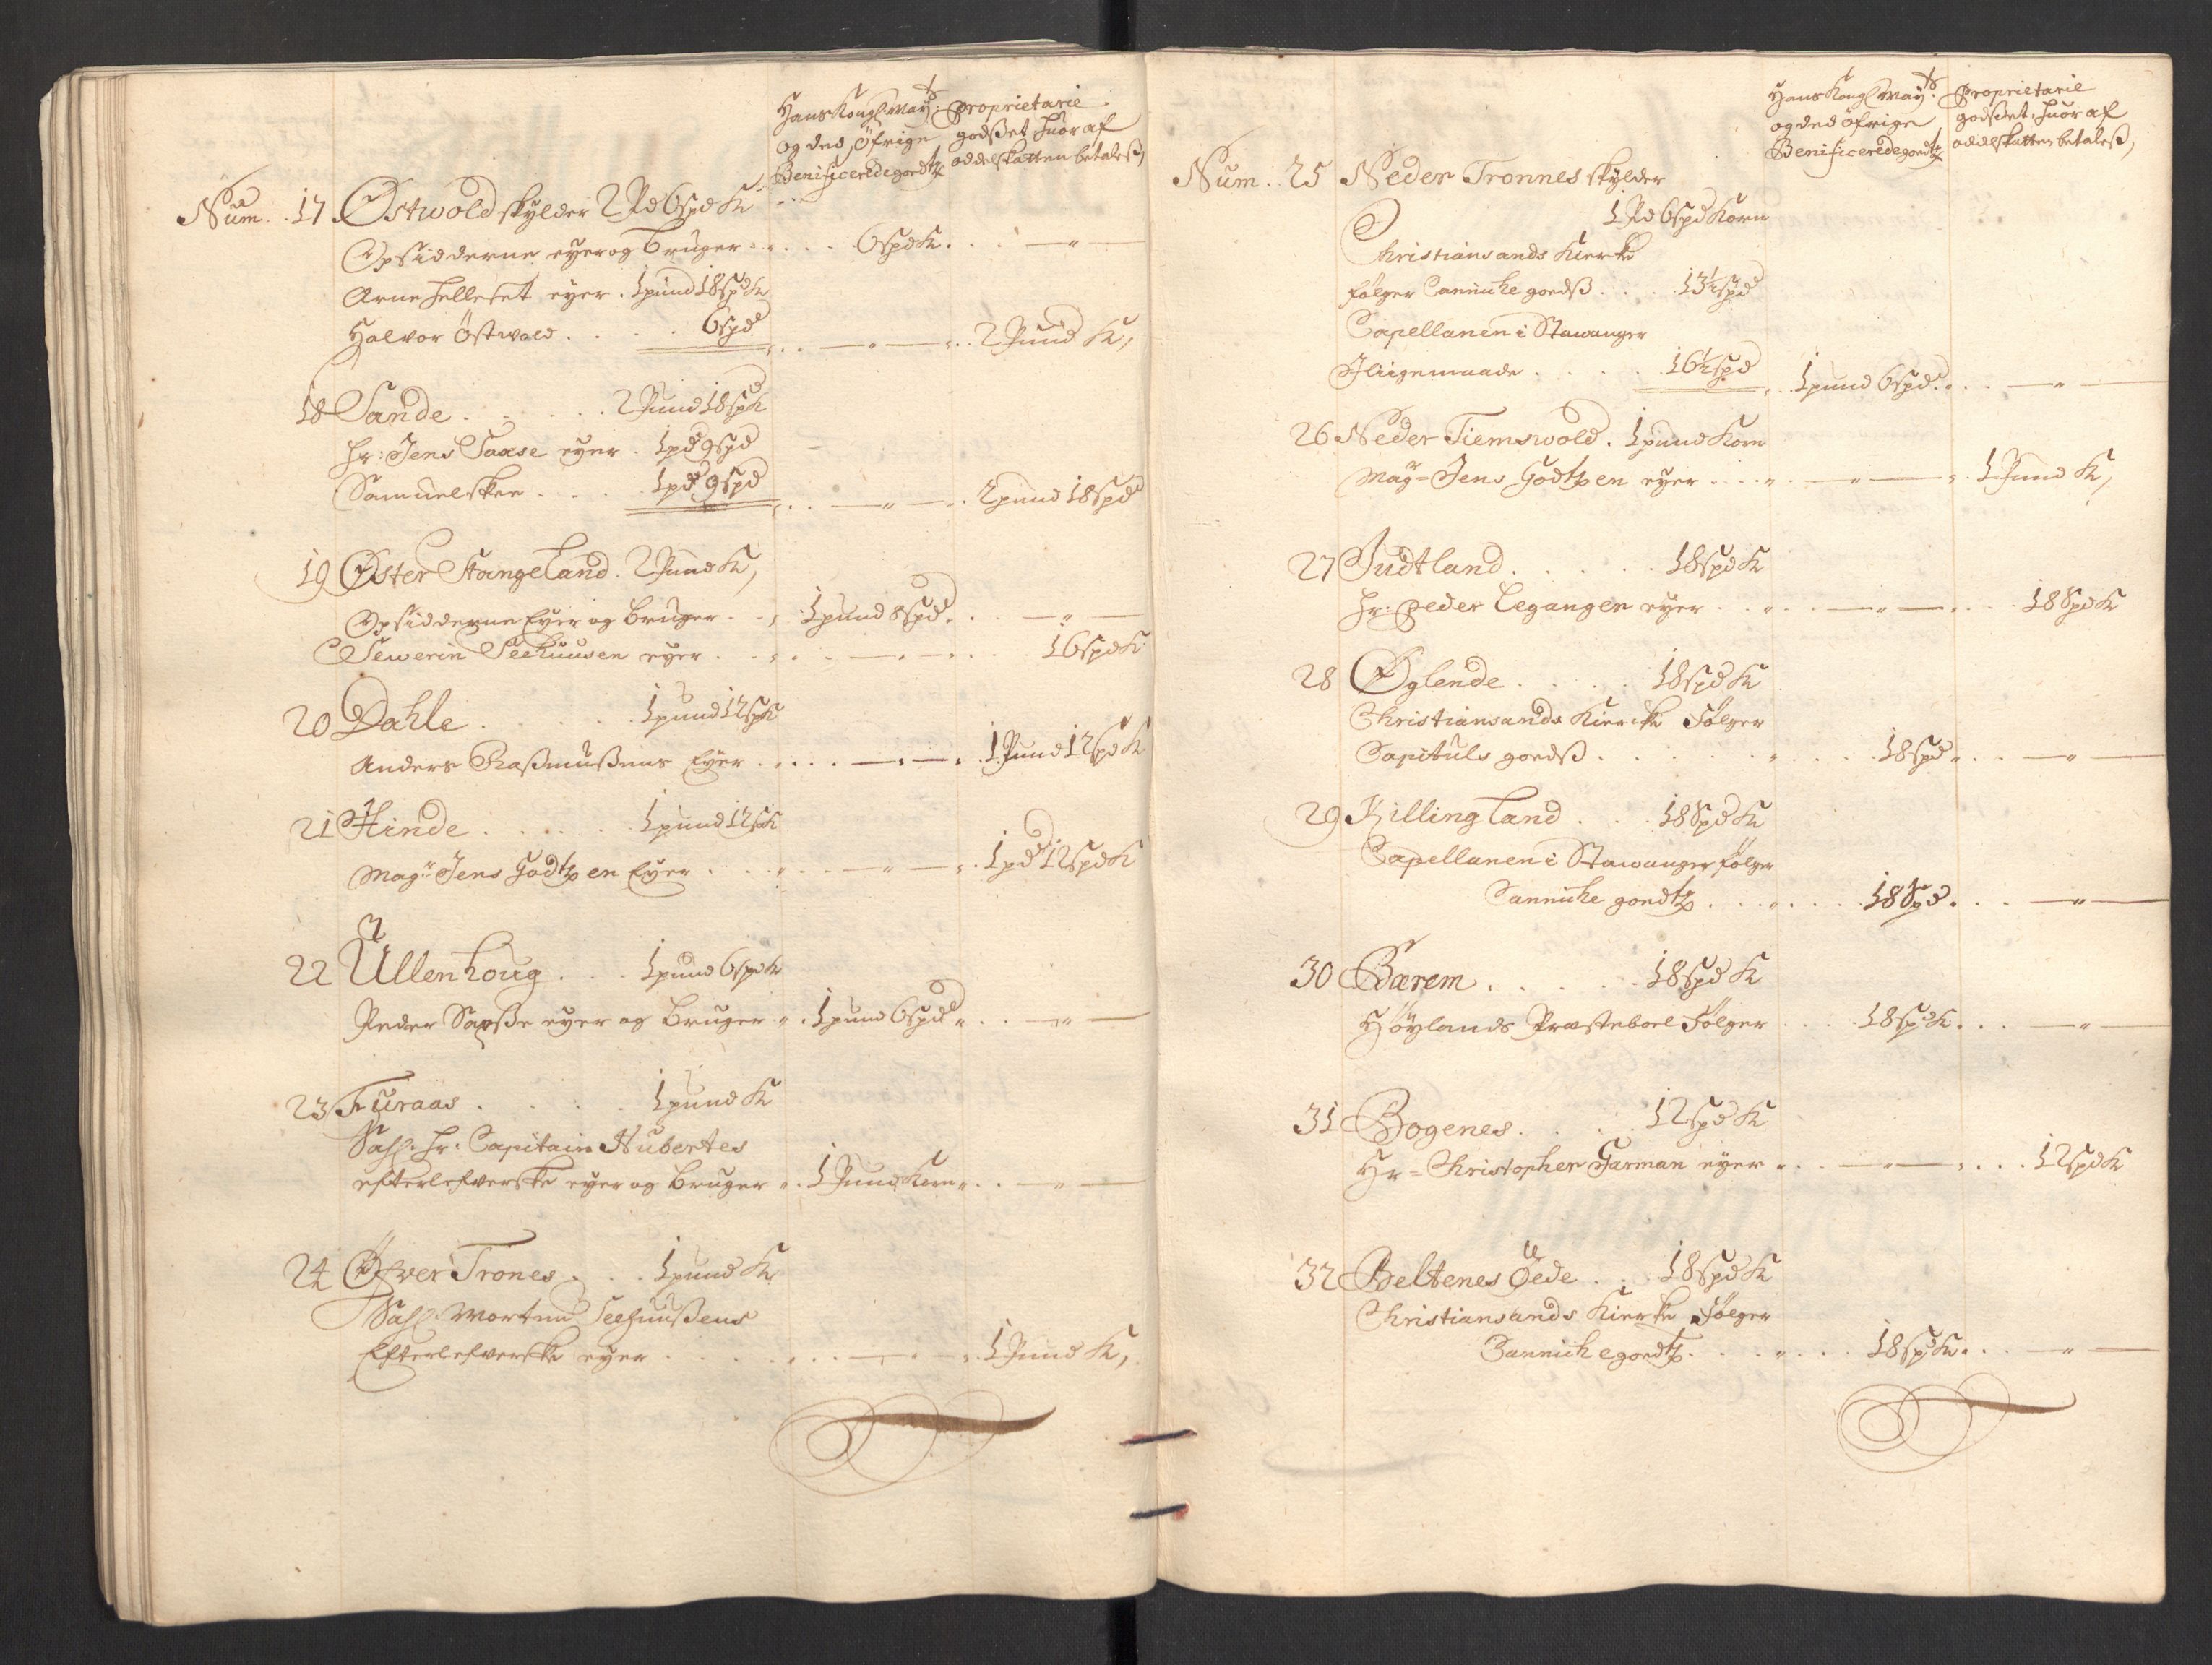 Hans Kongl May.ts
og ded öfrige
Benificerede goedtz
Proprietarie
godset huor af
oddelskatten betales,
Num. 17 Østwold skylder 2 Pd 6 spd K
Opsidderne eyer og bruger 6 spd K. „
Arne Helleset eyer. 1 pund 18 spd K
Halvor Östwold . . 6 spd „ 2 Pund K,
18 Sande . . . . 2 Pund 18 spd K
Hr: Jens Saxse eyer . 1 pd 9 spd
Samuelskee . . . 1 pd 9 spd „ 2 pund 18 spd
19 Øster Stangeland. 2 Pund K,
Opsidderne Eyer og bruger 1 pund 8 spd. „
Sewerin Seehuusen eyer „ 16 spd K
20 Dahle . . . . 1 pund 12 spd K
Anders Rasmusens Eyer „ 1 Pund 12 spd K
21 Hinde . . . . 1 pund 12 spd K
Mag:r Jens Godtzen Eyer „ 1 pd 12 spd K
22 Ullenhoug . . . 1 pund 6 spd K
Peder Saxse eyer og bruger „ 1 pund 6 spd „
23 Furaas . . . . 1 pund K
Sahl. Hr. Capitain Hubertes
efterlefverske eyer og bruger „ 1 Pund Korn „
24 Öfver Trones . . . 1 pund K
Sahl. Morten Seehuusens
Efterlefverske eyer „ 1 Pund K,
Hans Kongl May.ts
og ded öfrige
Benificerede goedtz
Proprietarie
godset, huor af
oddelskatten betales,
Num. 25 Neder Tronnes skylder
1 Pd 6 spd Korn
Christiansands Kierke
følger Cannicke goeds . . . 13½ spd
Capellanen i Stawanger
Jliigemaade . . . . 16½ spd „ 1 pund 6 spd. „
26 Neder Tiemswold . 1 pund Korn
Mag:r Jens Godtzen eyer „ 1 Pund K,
27 Judtland . . . . 18 spd K
Hr: Peder Leganger eyer „ 18 Spd K
28 Øglende . . . . 18 spd K
Christiansands Kiercke Følger
Capituls goeds . . . . „ 18 spd „
29 Killingland . . . 18 Spd K
Capellanen i Stawanger følger
Cannicke goedtz . . . „ 18 Spd . „
30 Bærem . . . . 18 spd K
Höylands Præsteboel Følger . . 18 spd K. „
31 Bogenes . . . . 12 spd K
Hr = Christopher Garman eyer „ 12 spd K
32 Beltenes Öede . . 18 spd K
Christiansands Kierke Følger
Cannicke goedtz . . . „ 18 spd K. „